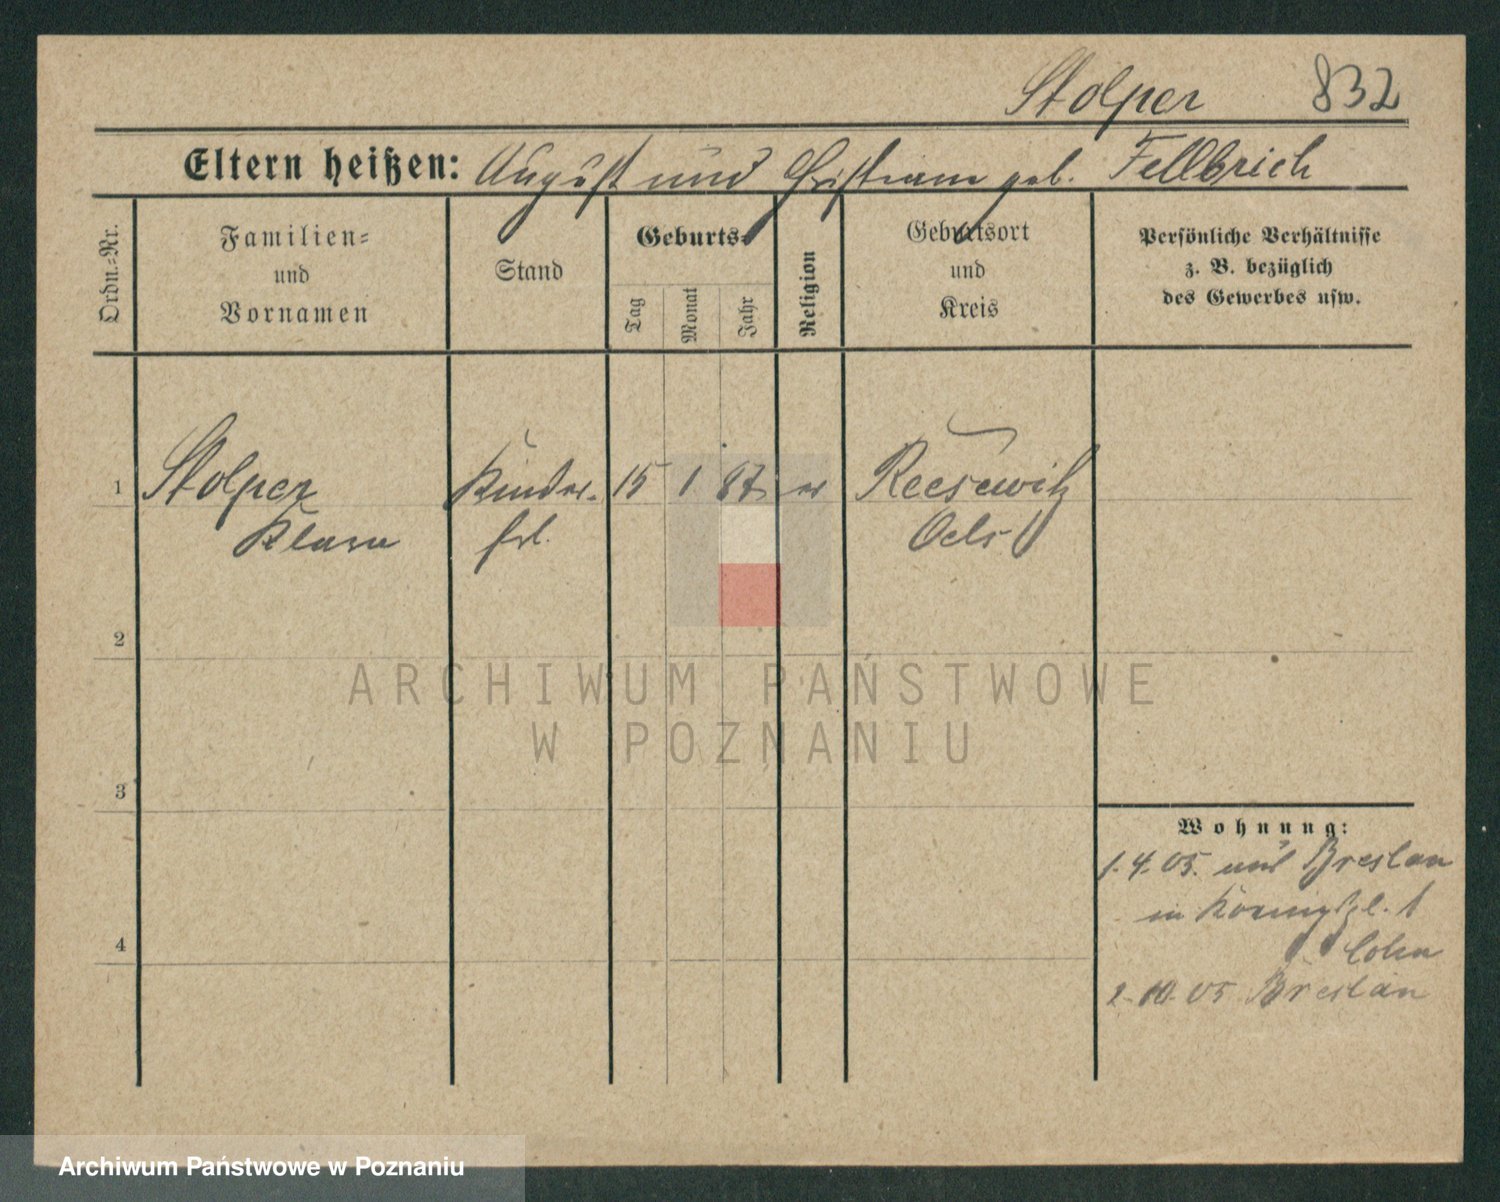 Stolper 832
Eltern heißen: August und Christiane geb. Fellbrich
Ordn.-Nr.
Familien-
und
Vornamen
Stand
Geburts-
Tag
Monat
Jahr
Religion
Geburtsort
und
Kreis
Persönliche Verhältnisse
z. B. bezüglich
des Gewerbes usw.
1 Stolper Kinder- 15 1 87 ev Reesewitz
Klara frl. Oels
2
3
4
Wohnung:
1.4.05. aus Breslau
in Königspl. 1
b. Cohn
2.10.05 Breslau
ARCHIWUM PAŃSTWOWE
W POZNANIU
Archiwum Państwowe w Poznaniu